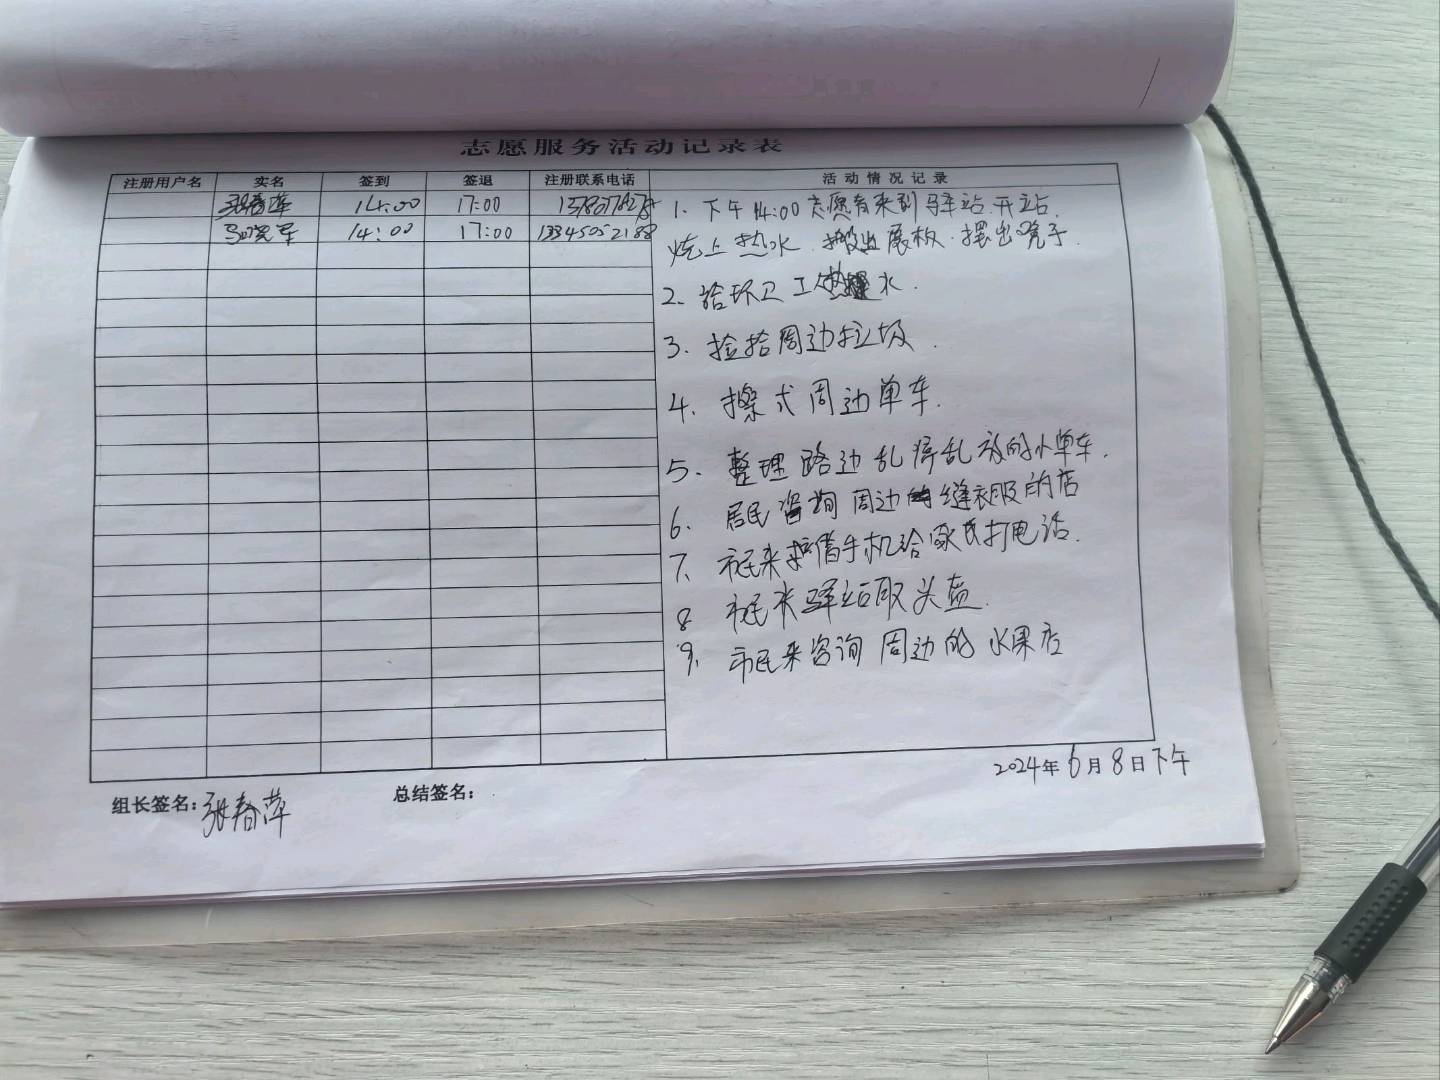 志愿服务活动记录表
注册用户名 实名 签到 签退 注册联系电话 活动情况记录
张春萍 14:00 17:00
14:00 17:00 13345052188
1. 下午14:00志愿者来到驿站.开站.
烧上热水.搬出展板.摆出凳子.
2. 给环卫工 水.
3. 捡拾周边垃圾.
4. 擦式周边单车.
5. 整理路边乱停乱放的小单车.
6. 居民咨询周边缝衣服的店
7. 市民来借手机给家长打电话.
8 市民来驿站取头盔.
9. 市民来咨询周边的水果店
2024年6月8日下午
组长签名:张春萍 总结签名: